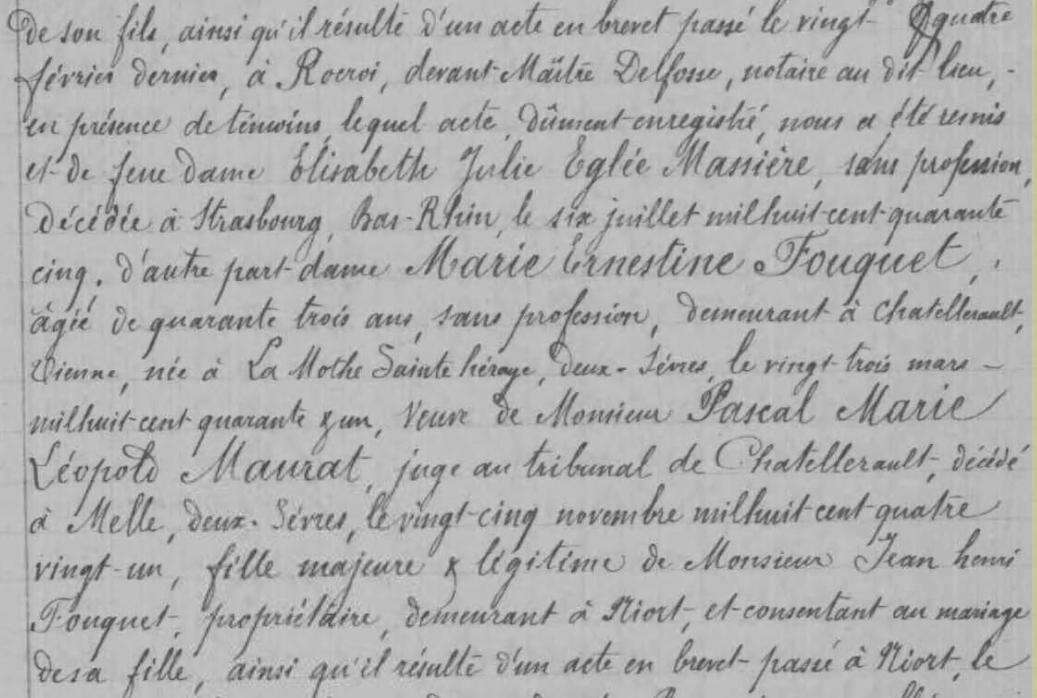 de son fils, ainsi qu'il résulte d'un acte en brevet passé le vingt quatre
février dernier, à Rocroi, devant Maître Delfosse, notaire au dit lieu,
en présence de témoins, lequel acte, dûment enregistré, nous a été remis
et de feue dame Elisabeth Julie Eglée Massière, sans profession,
décédée à Strasbourg, Bas-Rhin, le six juillet mil huit cent quarante
cinq. d'autre part dame Marie Ernestine Fouquet,
âgée de quarante trois ans, sans profession, demeurant à Chatellerault,
Vienne, née à La Mothe Sainte héraye, deux-Sèvres, le vingt trois mars
mil huit cent quarante & un, Veuve de Monsieur Pascal Marie
Léopold Maurat, juge au tribunal de Chatellerault, décédé
à Melle, deux-Sèvres, le vingt-cinq novembre mil huit cent quatre
vingt-un, fille majeure & légitime de Monsieur Jean henri
Fouquet, propriétaire, demeurant à Niort, et consentant au mariage
de sa fille, ainsi qu'il résulte d'un acte en brevet passé à Niort, le